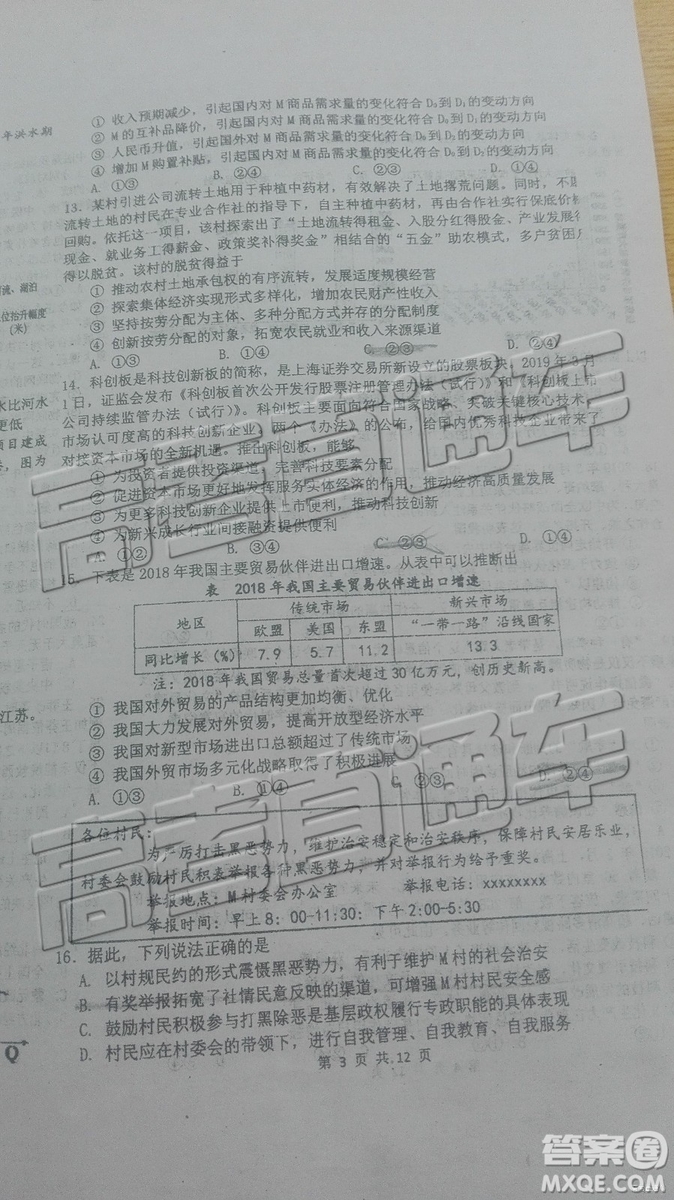 年洪水期
流、湖泊
位抬升幅度
(米)
水比河水
更低
项目建成
，图为
江苏。
Q
① 收入预期减少，引起国内对M商品需求量的变化符合D₀到D₁的变动方向
② M的互补品降价，引起国内对M商品需求量的变化符合D₀到D₁的变动方向
③ 人民币升值，引起国外对M商品需求量的变化符合D₀到D₁的变动方向
④ 增加M购置补贴，引起国内对M商品需求量的变化符合D₀到D₁的变动方向
A. ①③ B. ②④ C. ②③ D. ①④
13. 某村引进公司流转土地用于种植中药材，有效解决了土地撂荒问题。同时，不愿
流转土地的村民在专业合作社的指导下，自主种植中药材，再由合作社实行保底价格
回购。依托这一项目，该村探索出了“土地流转得租金、入股分红得股金、产业发展得
现金、就业务工得薪金、政策奖补得奖金”相结合的“五金”助农模式，多户贫困户
得以脱贫。该村的脱贫得益于
① 推动农村土地承包权的有序流转，发展适度规模经营
② 探索集体经济实现形式多样化，增加农民财产性收入
③ 坚持按劳分配为主体、多种分配方式并存的分配制度
④ 创新按劳分配的对象，拓宽农民就业和收入来源渠道
A. ①③ B. ①④ C. ②③ D. ②④
14. 科创板是科技创新板的简称，是上海证券交易所新设立的股票板块，2019年3月
1日，证监会发布《科创板首次公开发行股票注册管理办法（试行）》和《科创板上市
公司持续监管办法（试行）》。科创板主要面向符合国家战略、突破关键核心技术、
市场认可度高的科技创新企业。两个《办法》的公布，给国内优秀科技企业带来了
对接资本市场的全新机遇。推出科创板，能够
① 为投资者提供投资渠道，完善科技要素分配
② 促进资本市场更好地发挥服务实体经济的作用，推动经济高质量发展
③ 为更多科技创新企业提供上市便利，推动科技创新
④ 为新兴成长行业间接融资提供便利
A. ①② B. ③④ C. ②③ D. ①④
15. 下表是2018年我国主要贸易伙伴进出口增速。从表中可以推断出
表 2018年我国主要贸易伙伴进出口增速
地区 传统市场 新兴市场
欧盟 美国 东盟 “一带一路”沿线国家
同比增长(%) 7.9 5.7 11.2 13.3
注：2018年我国贸易总量首次超过30亿万元，创历史新高。
① 我国对外贸易的产品结构更加均衡、优化
② 我国大力发展对外贸易，提高开放型经济水平
③ 我国对新型市场进出口总额超过了传统市场
④ 我国外贸市场多元化战略取得了积极进展
A. ①③ B. ①④ C. ②③ D. ②④
各位村民：
为严厉打击黑恶势力，维护治安稳定和治安秩序，保障村民安居乐业，
村委会鼓励村民积极举报各种黑恶势力，并对举报行为给予重奖。
举报地点：M村委会办公室 举报电话：xxxxxxxx
举报时间：早上8：00-11:30；下午2:00-5:30
16. 据此，下列说法正确的是
A. 以村规民约的形式震慑黑恶势力，有利于维护M村的社会治安
B. 有奖举报拓宽了社情民意反映的渠道，可增强M村村民安全感
C. 鼓励村民积极参与打黑除恶是基层政权履行专政职能的具体表现
D. 村民应在村委会的带领下，进行自我管理、自我教育、自我服务
第 3 页 共 12 页
高考直通车
高考直通车
答案圈
MXQE.COM